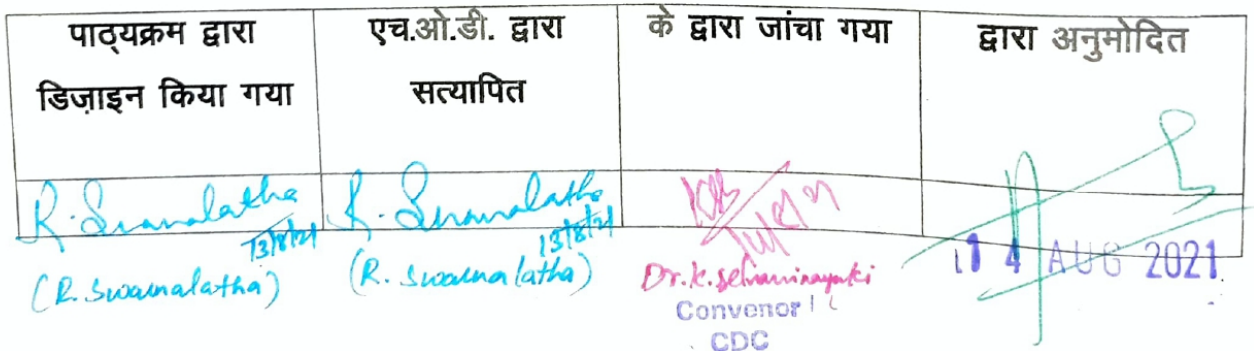 पाठ्यक्रम द्वारा
डिज़ाइन किया गया
एच.ओ.डी. द्वारा
सत्यापित
के द्वारा जांचा गया
द्वारा अनुमोदित
R. Swarnalatha
13/8/21
(R. Swarnalatha)
R. Swarnalatha
13/8/21
(R. Swarnalatha)
Dr. K. Selvavinayaki
Convenor
CDC
14 AUG 2021